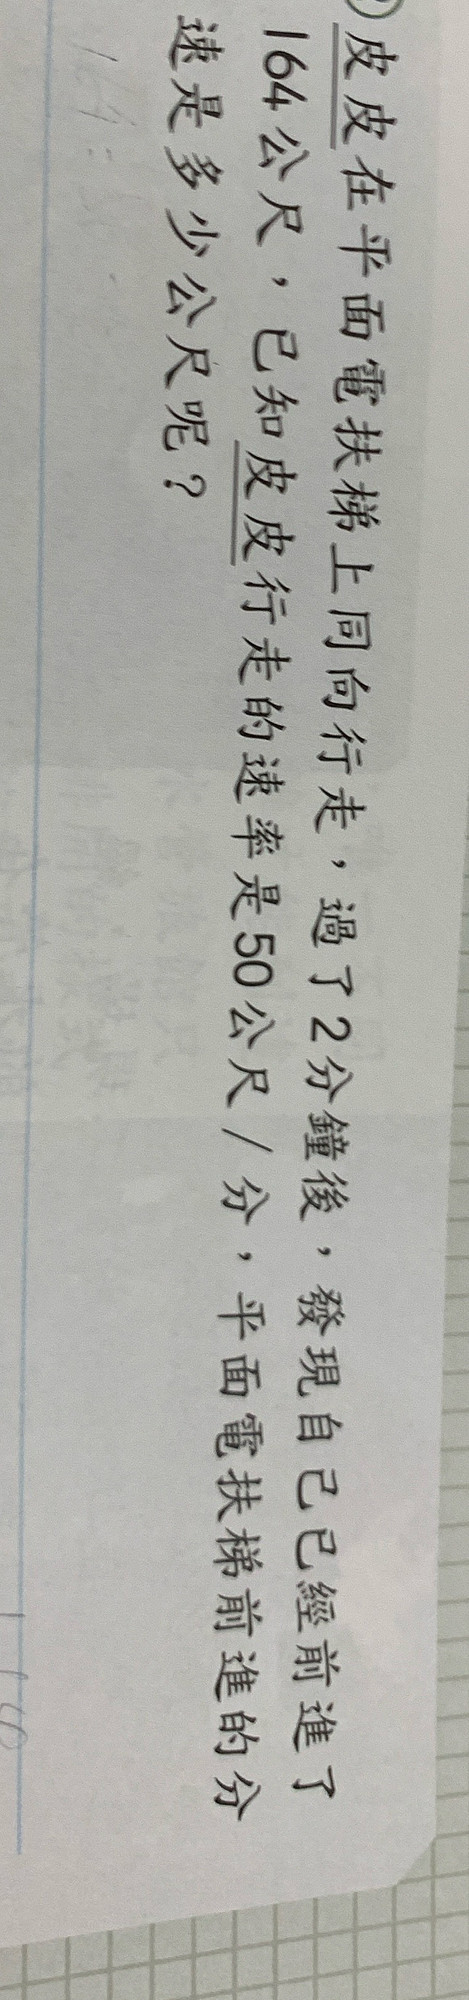 皮皮在平面電扶梯上同向行走，過了2分鐘後，發現自己已經前進了
164公尺，已知皮皮行走的速率是50公尺/分，平面電扶梯前進的分
速是多少公尺呢？